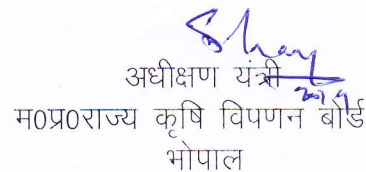 अधीक्षण यंत्री
म0प्र0राज्य कृषि विपणन बोर्ड
भोपाल